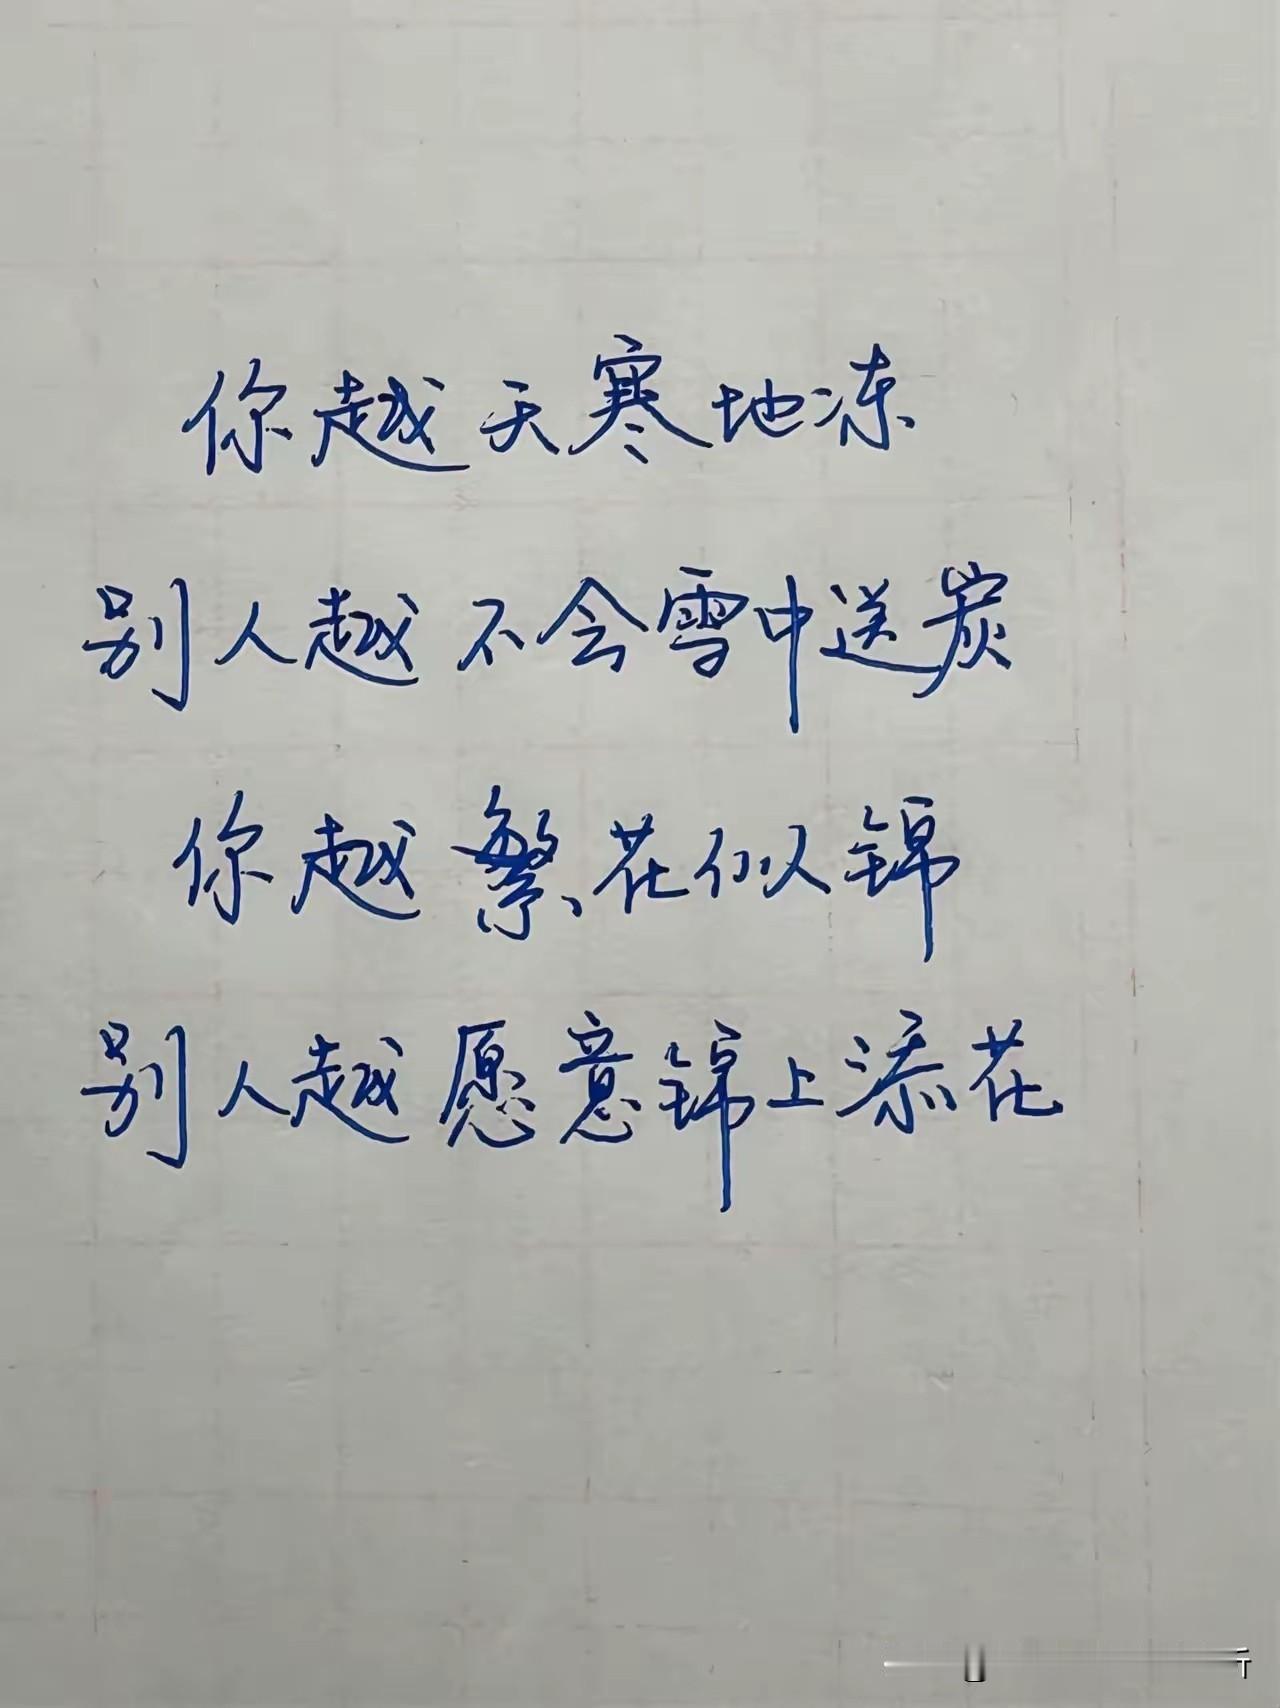 你越天寒地冻
别人越不会雪中送炭
你越繁花似锦
别人越愿意锦上添花